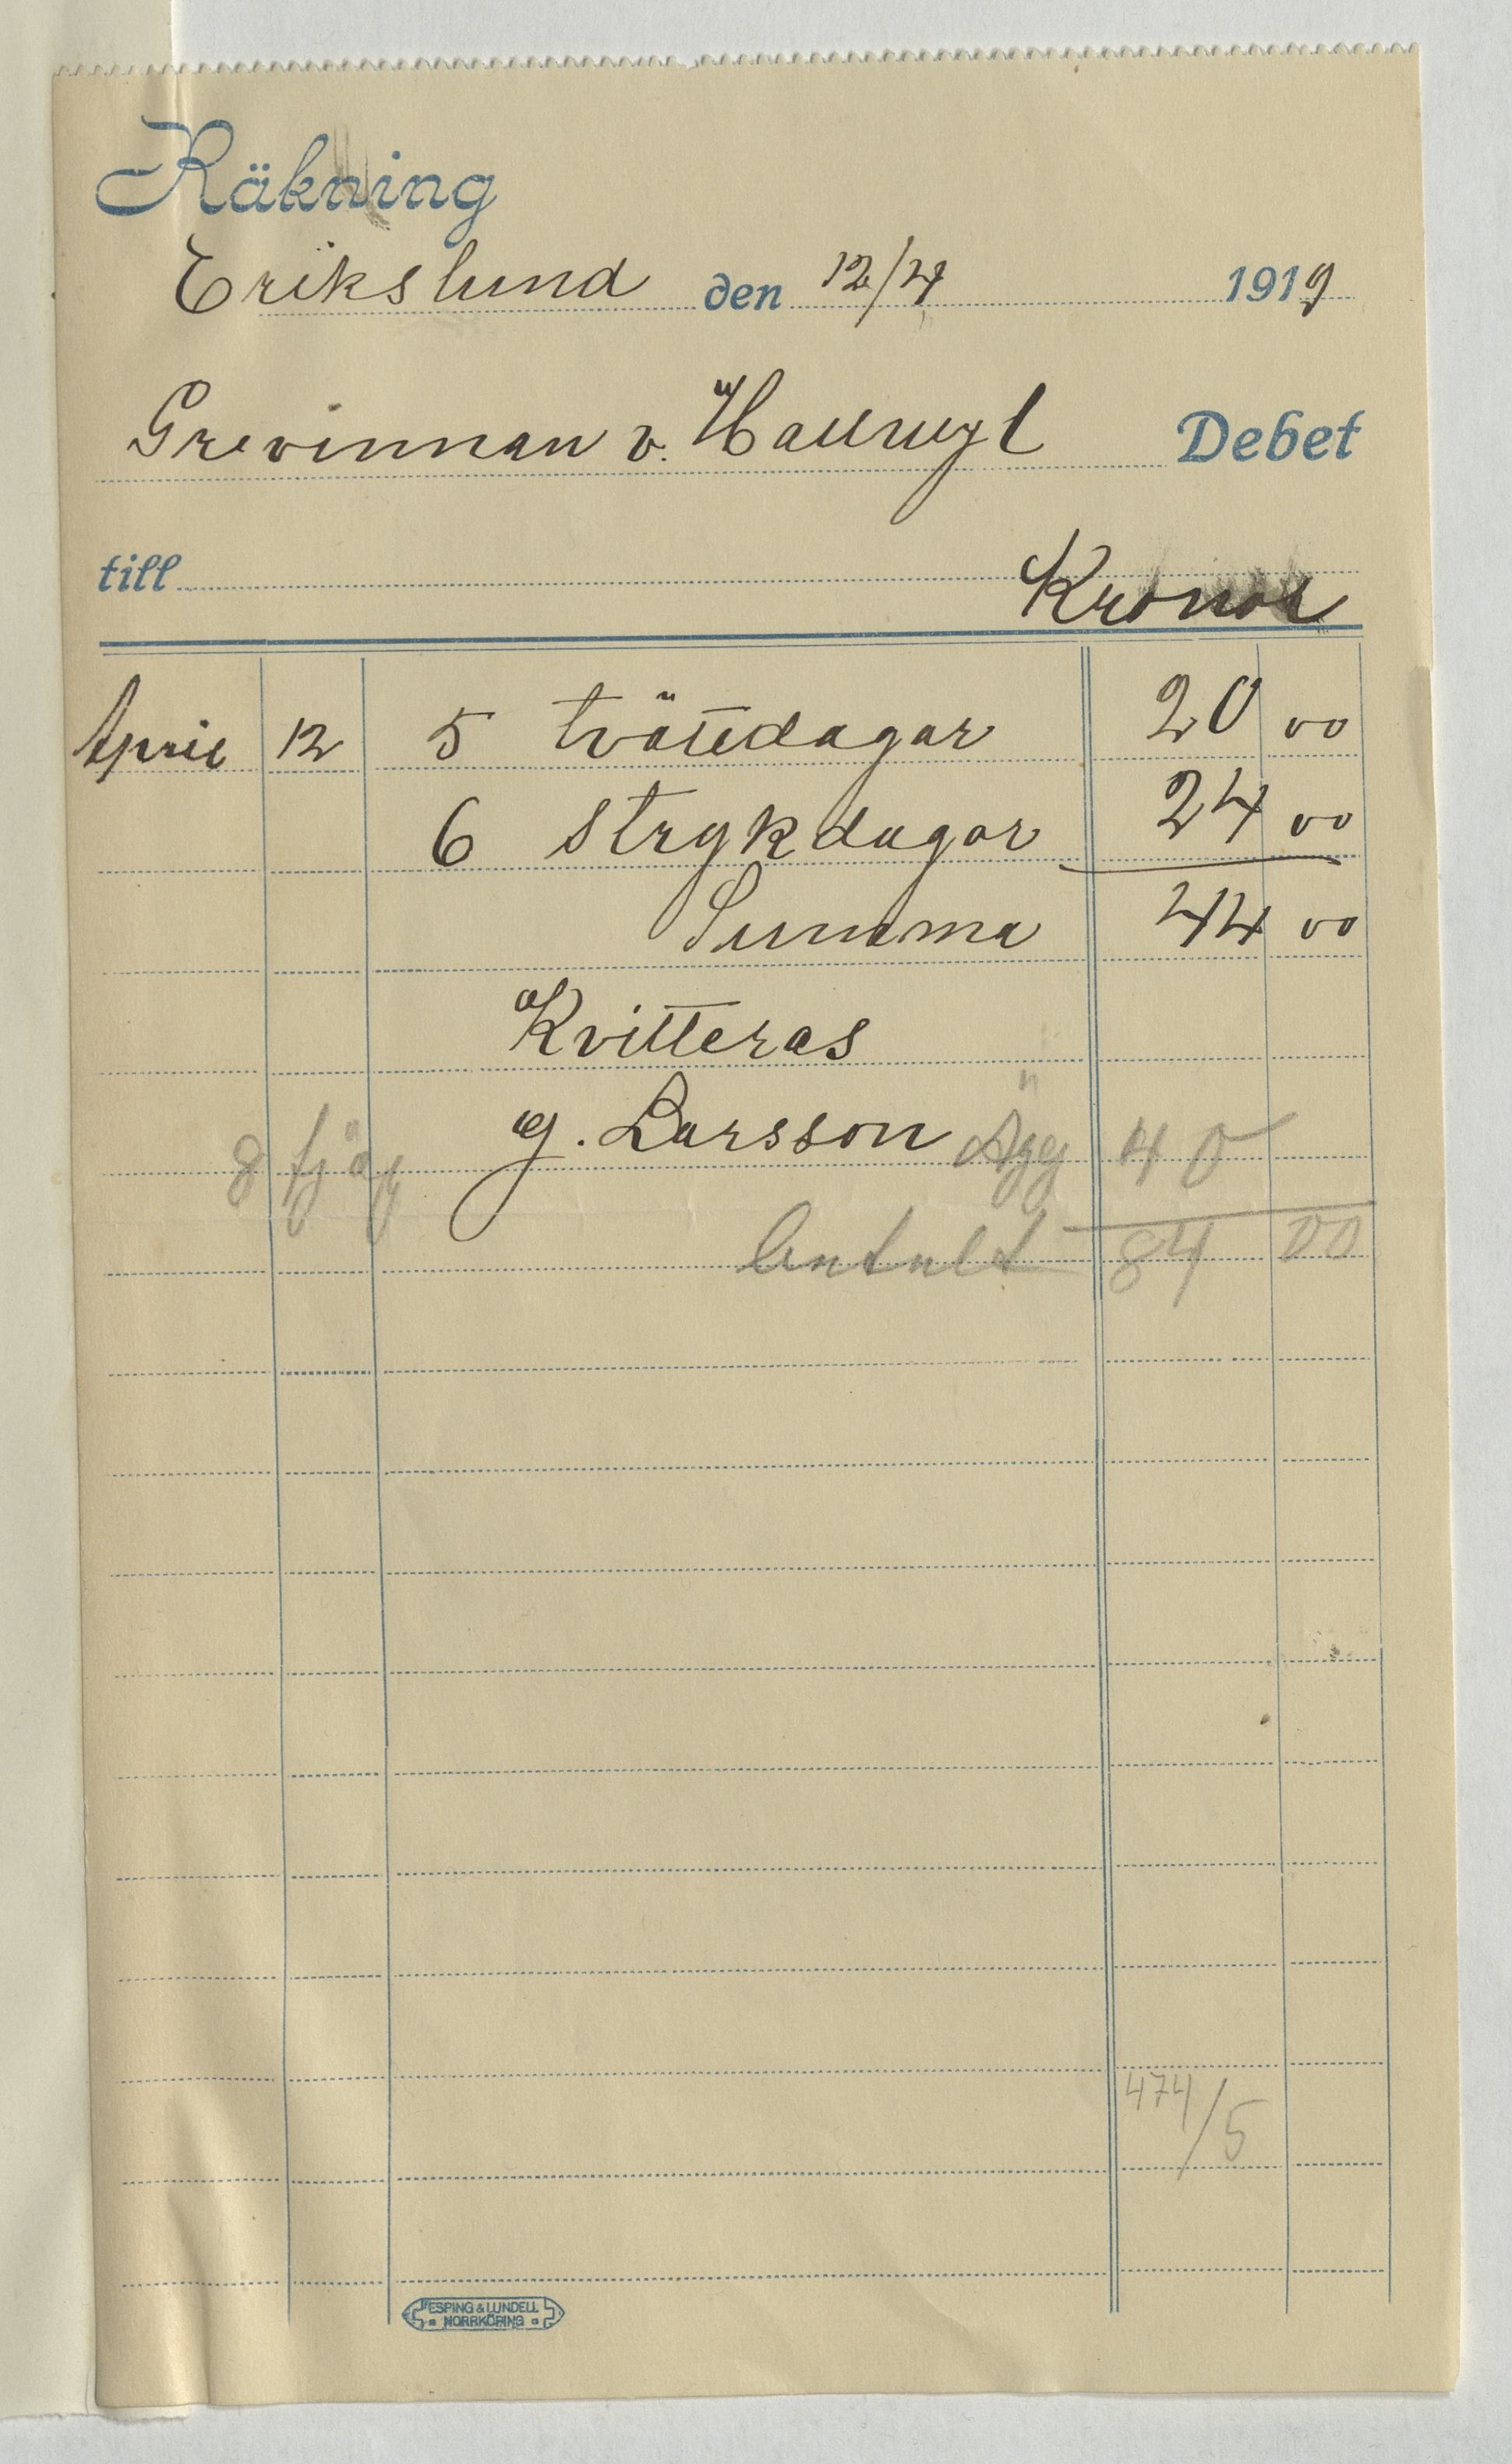 Räkning
Erikslund den 12/4 1919
Grevinnan v. Hallwyl Debet
till
Kronor
April 12 5 tvättdagar 20 00
6 strykdagar 24 00
Summa 44 00
Kvitteras
G. Larsson
8 tjog Ägg 40
Antalt 84 00
474/5
ESPING & LUNDELL
NORRKÖPING